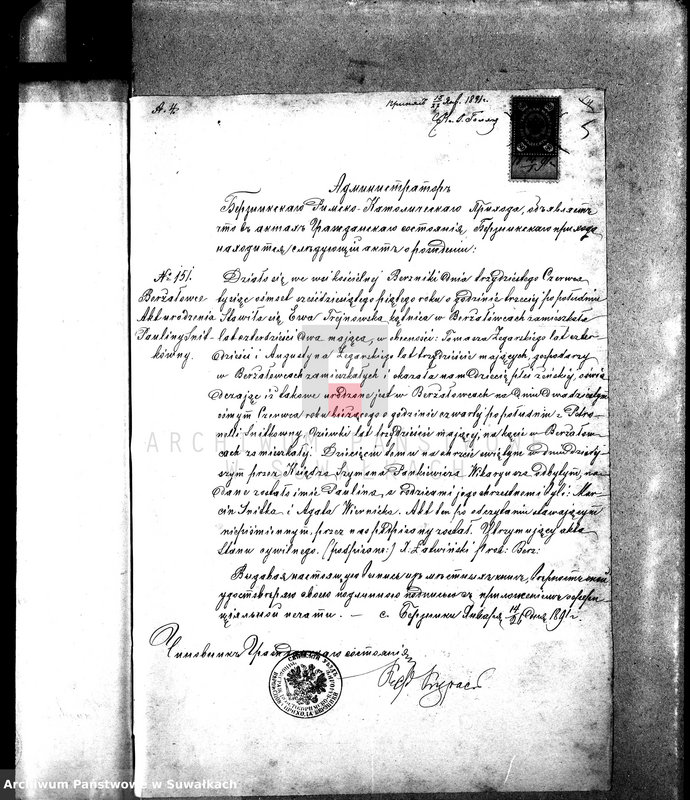 А. 4.
5
Администраторъ
Берзникскаго Римско-Католическаго Прихода, объявляетъ
что въ актахъ Гражданскаго состоянія, Берзникскаго прихода
находится слѣдующій актъ о рожденіи:
№ 151.
Berżałowce
Akt urodzenia
Pauliny Snit-
kówny.
Działo się we wsi kościelnej Berzniki dnia trzydziestego Czerwca
tysiąc ośmset sześćdziesiątego piątego roku o godzinie trzeciej po południu
Stawiła się Ewa Trejnowska kątnica w Berżałowcach zamieszkała
lat czterdzieści dwa mająca, w obecności: Tomasza Żegarskiego lat czter-
dzieści i Augustyna Żegarskiego lat trzydzieście mających, gospodarzy
w Berżałowcach zamieszkałych i okazała nam dziecię płci żeńskiej, oświa
dczając iż takowe urodzone jest w Berżałowcach na dniu dwudziestym
ósmym Czerwca roku bieżącego o godzinie czwartej po południu z Petro-
nelli Snitkówny, dziewki lat trzydzieście mającej, na kącie w Berżałow-
cach zamieszkałej. Dziecięciu temu na chrzcie świętym
przez Księdza Szymona Pankiewicza Wikaryusza odbytym, na
dane zostało imie Paulina, a rodzicami jego chrzestnemi byli: Mar-
cin Snitka i Agata Wiernicka. Akt ten po odczytaniu stawającym
niepiśmiennym, przez nas podpisany został. Utrzymujący akta
Stanu cywilnego. (podpisano:) J. Łatwiński
Выдавая настоящую выпись изъ мѣстныхъ книгъ, вѣрность оной
удостовѣряю своею подлинною подписью съ приложеніемъ оффи-
ціальной печати. — с. Берзники Января 14/26 дня 1891 г.
Чиновникъ Гражданскаго состоянія
ARCHIWUM PAŃSTWOWE
W SUWAŁKACH
Archiwum Państwowe w Suwałkach